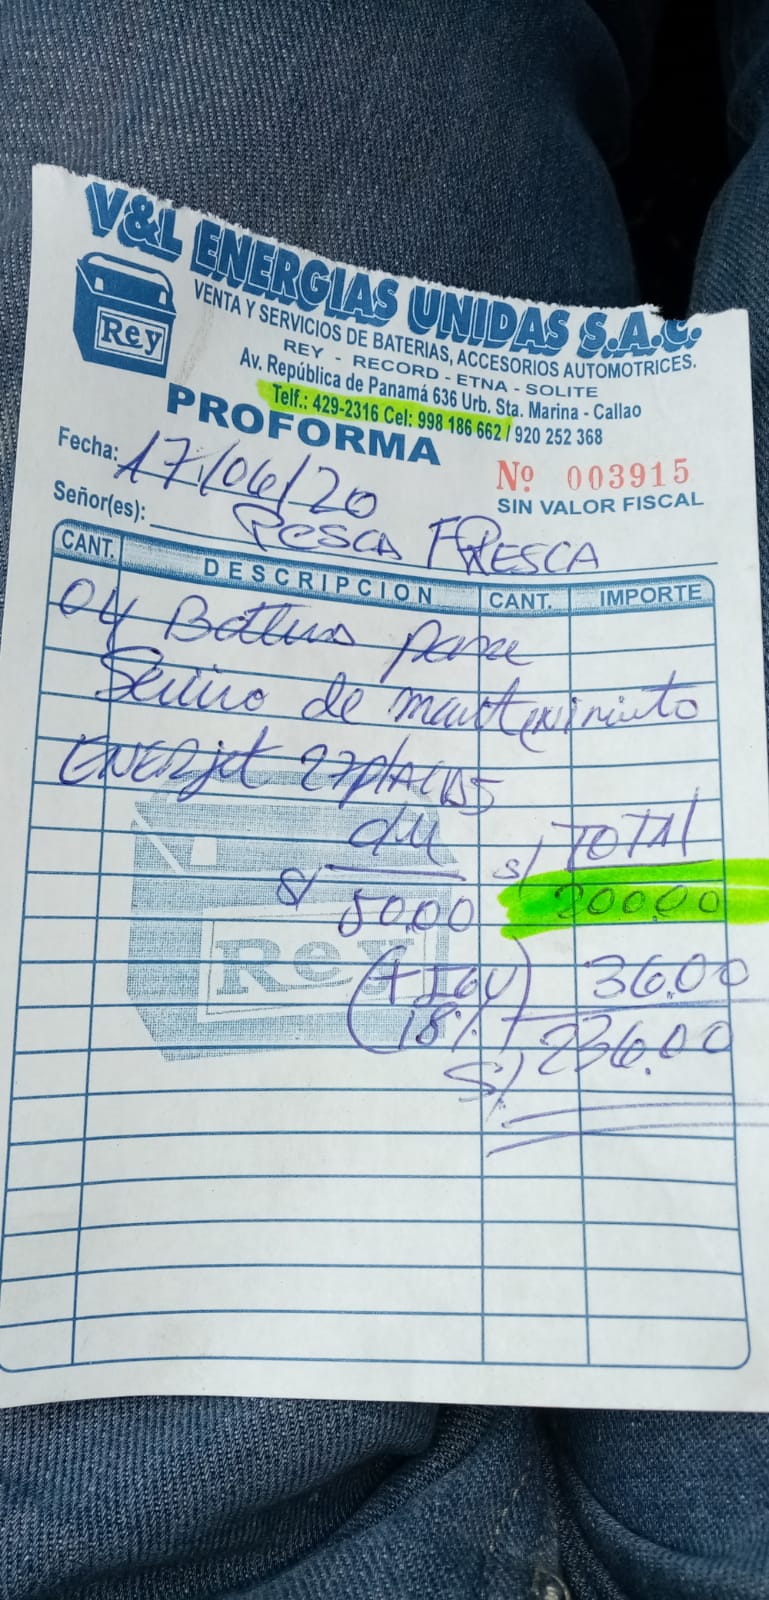 V&L ENERGIAS UNIDAS S.A.C.
VENTA Y SERVICIOS DE BATERIAS, ACCESORIOS AUTOMOTRICES.
REY - RECORD - ETNA - SOLITE
Av. República de Panamá 636 Urb. Sta. Marina - Callao
Telf.: 429-2316 Cel: 998 186 662 / 920 252 368
Rey
PROFORMA
Nº 003915
SIN VALOR FISCAL
Fecha: 17/06/20
Señor(es): PESCA FRESCA
CANT. DESCRIPCION CANT. IMPORTE
04 para
de mantenimiento
ENERjet 27 PLACAS
S/ S/ TOTAL
50.00 200.00
(+ IGV 18%) 36.00
S/ 236.00
Rey